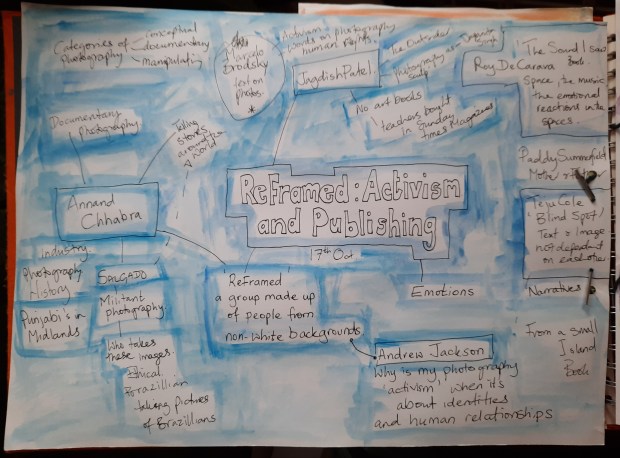 Categories of
Photography
conceptual
documentary
manipulating
Marcelo
Brodsky
text on
photos.
*
Activism
words on photography
human rights.
Jagdish Patel
The Outsider
Photography as
No art books
teachers bought
in Sunday
Times Magazines
Roy DeCarava
'The Sound I Saw
Book.
Space, the music
the emotional
reactions in the
spaces.
Documentary
Photography
Taking
stories
around the
world
Annand
Chhabra
ReFramed: Activism
and Publishing
17th Oct
Paddy Summerfield
Mother &
Teju Cole
'Blind Spot'
Text & Image
not dependent
on each other
Narratives
industry
Photography
History
Punjabi's in
Midlands
SALGADO
Militant
photography.
Who takes
these images.
Ethical
Brazillian
taking pictures
of Brazillians
'ReFramed'
a group made up
of people from
non-white backgrounds
Emotions
Andrew Jackson
Why is my photography
'activism' when it's
about identities
and human relationships
From a small
Island
Book